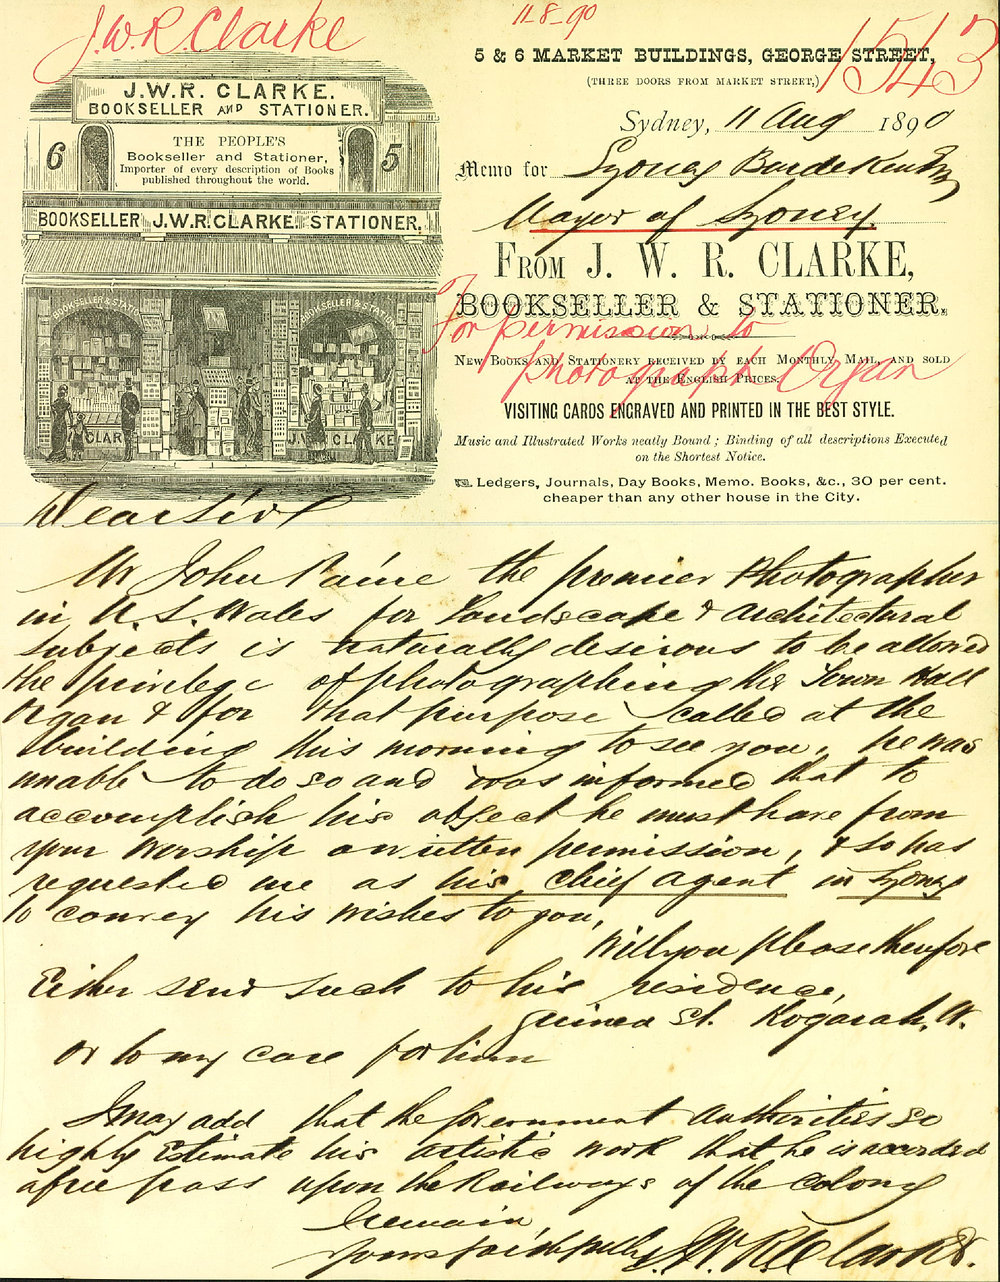 J.W.R. Clarke
11-8-90
1543
J.W.R. CLARKE.
BOOKSELLER AND STATIONER.
6
THE PEOPLE'S
Bookseller and Stationer,
Importer of every description of Books
published throughout the world.
5
BOOKSELLER J.W.R. CLARKE. STATIONER.
BOOKSELLER & STATIO
BOOKSELLER & STATIO
CLAR
J.W. CLARKE
5 & 6 MARKET BUILDINGS, GEORGE STREET,
(THREE DOORS FROM MARKET STREET,)
Sydney, 11 Aug 1890
Memo for Sydney Burdekin
Mayor of Sydney.
FROM J. W. R. CLARKE,
BOOKSELLER & STATIONER.
For permission to
photograph Organ
NEW BOOKS AND STATIONERY RECEIVED BY EACH MONTHLY MAIL, AND SOLD
AT THE ENGLISH PRICES.
VISITING CARDS ENGRAVED AND PRINTED IN THE BEST STYLE.
Music and Illustrated Works neatly Bound; Binding of all descriptions Executed
on the Shortest Notice.
Ledgers, Journals, Day Books, Memo. Books, &c., 30 per cent.
cheaper than any other house in the City.
Dear Sir
Mr John Paine the premier Photographer
in N. S. Wales for Landscape & Architectural
subjects is naturally desirous to be allowed
the privilege of photographing the Town Hall
Organ & for that purpose called at the
building this morning to see you, he was
unable to do so and was informed that to
accomplish his object he must have from
your Worship a written permission, & so has
requested me as his chief agent in Sydney
to convey his wishes to you,
Will you please therefore
Either send such to his residence,
Guinea St. Kogarah.
or to my care for him
I may add that the Government authorities so
highly Estimate his artistic work that he is accorded
a free pass upon the Railways of the Colony
I remain,
Yours faithfully
J.W.R. Clarke.